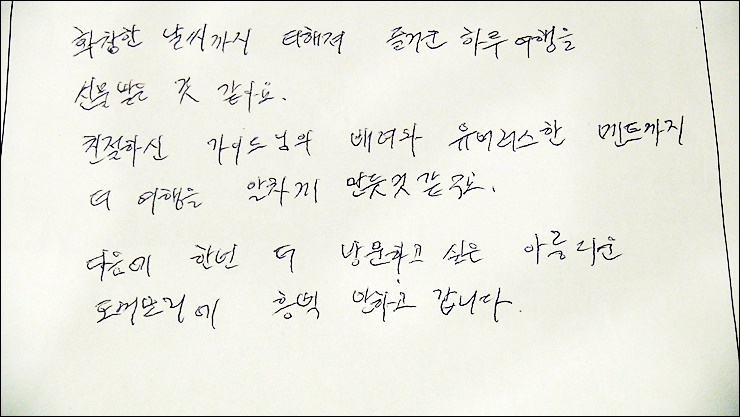 화창한 날씨까지 더해져 즐거운 하루 여행을
선물 받은 것 같아요.
친절하신 가이드님의 배려와 유머러스한 멘트까지
더 여행을 알차게 만든것 같구요.
다음에 한번 더 방문하고 싶은 아름다운
에 흠뻑 안하고 갑니다.